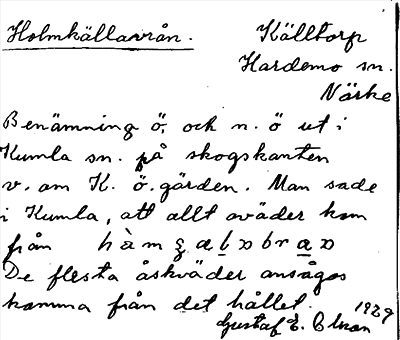 Holmkällavrån.
Källtorp
Hardemo sn.
Närke
Benämning ö, och n. ö ut i
Kumla sn. på skogskanten
v. om K. ö. gärden. Man sade
i Kumla, att allt oväder kom
från
De flesta åskväder ansågos
komma från det hållet.
1929
Gustaf E. Olson